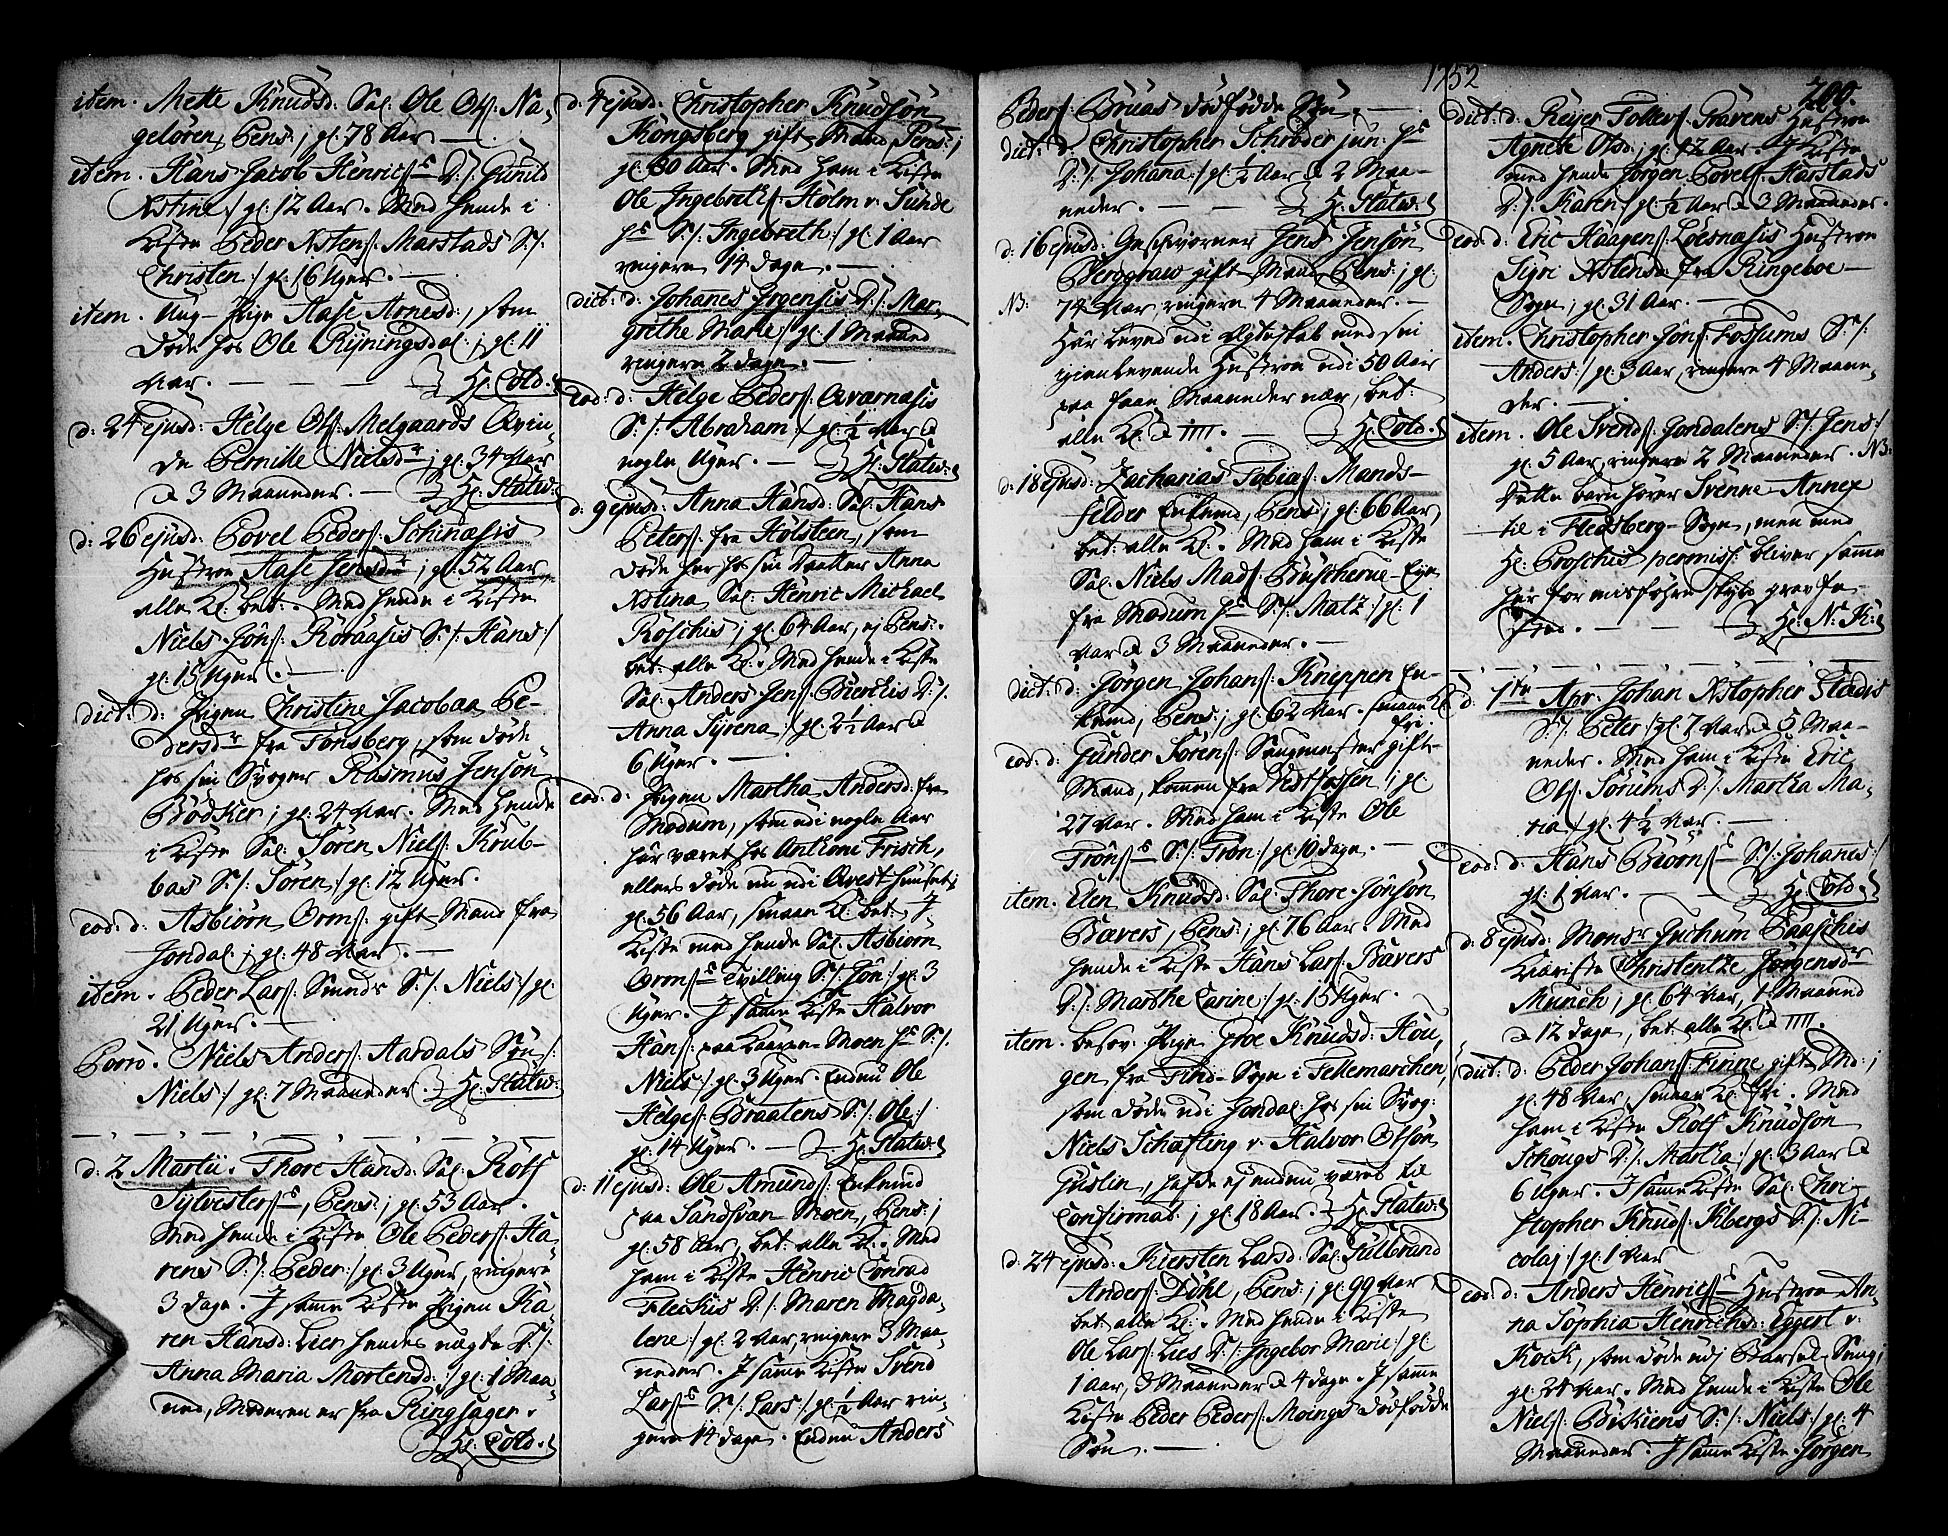 1752
200.
item. Mette Knudsd: Sal. Ole Ols: Na-
gelören, Pens:, gl: 78 Aar —
item. Hans Jacob Henrics: D:/: Gunild
Xstine:/ gl: 12 Aar. Med hende i
Kiste Peder Xstens: Marstads S:/:
Christen:/ gl: 16 Uger. —
item. Ung Pige Aase Arnesd:, som
døde hos Ole Ryningsdal:, gl: 11
Aar. — — — Hr: Cold.
d: 24 ejusd: Helge Ols: Melgaards Qvin-
de Pernille Nielsdr, gl: 34 Aar
a 3 Maaneder. — Hr: Statw:
d: 26 ejusd: Povel Peders: Schinasis
Hustroe Aase Jensdr, gl: 52 Aar,
alle Kl: bet:. Med hende i Kiste
Niels Jöns: Röraasis S:/: Hans:/
gl: 15 Uger. —
dict: d: Pigen Christine Jacobaa Pe-
dersdr fra Tonsberg, som døde
hos sin Svoger Rasmus Jensön
Bödker, gl: 24 Aar. Med hende
i Kiste Sal. Sören Niels: Krub-
bas S:/: Sören:/ gl: 12 Uger.
eod: d: Asbiörn Orms: gift Mand fra
Jondal:, gl: 48 Aar. —
item. Peder Lars: Smeds S:/: Niels:/ gl:
21 Uger. —
Niels Anders: Aardals Sön:/:
Niels:/ gl: 7 Maaneder. Hr: Statw:
d: 2 Martii. Thore Hansd: Sal. Rolf
Sylvesters:, Pens:, gl: 53 Aar.
Med hende i Kiste Ole Peders: Ha-
rens S:/: Peder:/ gl: 3 Uger, ringere
3 dage. I samme Kiste Pigen Ka-
ren Hansd: Lier hendes uægte D:/:
Anna Maria Mortensd:/ gl: 1 Maa-
ned, Moderen er fra Ringsager.
Hr: Cold.
d: 4 ejusd: Christopher Knudsön
Kongsberg gift Mand, Pens:,
gl: 30 Aar. Med ham i Kiste
Ole Ingebretz: Holm v: Lunde
hs S:/: Ingebreth:/ gl: 1 Aar
ringere 14 dage. —
dict: d: Johanes Jrgensis D:/: Mar-
grethe Marie:/ gl: 1 Maaned
ringere 2 dage. —
eod: d: Helge Peders: Qværnasis
S:/: Abraham:/ gl: ½ Aar a
nogle Uger. — Hr: Statw:
d: 9 ejusd: Anna Hansd: Sal. Hans
Peters: fra Holsteen, som
døde her hos sin Daatter Anna
Xstina Sal. Henric Michael
Röschis, gl: 64 Aar, ej Pens:.
bet: alle Kl:. Med hende i Kiste
Sal. Anders Jens: Bierchis D:/:
Anna Syrena:/ gl: 2½ Aar a
6 Uger. —
eod: d: Pigen Martha Andersd: fra
Modum, som udi nogle Aar
har været hos Anthoni Frisch,
ellers døde nu udi Qvesthuuset,
gl: 56 Aar, smaae Kl: bet:. I
Kiste med hende Sal. Asbiörn
Orms: Tvilling S:/: Jön:/ gl: 3
Uger. I samme Kiste Halvor
Hans: paa Moen hs S:/:
Niels:/ gl: 3 Uger. Endnu Ole
Helges: Braatens S:/: Ole:/
gl: 14 Uger. — Hr: Statw:
d: 11 ejusd: Ole Amunds: Enkemd
paa Sandsvær Moen, Pens:,
gl: 58 Aar, bet: alle Kl:. Med
ham i Kiste Henric Conrad
Fleckis D:/: Maren Magda-
lene:/ gl: 2 Aar, ringere 3 Maa-
neder. I samme Kiste Svend
Lars: S:/: Lars:/ gl: ½ Aar rin-
gere 14 dage. Endnu Anders
Peders: Bruas dødfødde Sön. —
dict: d: Christopher Schröder jun: hs
D:/: Johana:/ gl: ½ Aar a 2 Maa-
neder. — — Hr: Statw:
d: 16 ejusd: Geschworner Jens Jensön
Berggraw gift Mand Pens:, gl:
NB: 74 Aar, ringere 4 Maaneder. —
Har levet udi Ægteskab med sin
igienlevende Hustroe udi 50 Aar
paa faae Maaneder nær, bet:
alle Kl: a IIII. — Hr: Cold.
d: 18 ejusd: Zacharias Tobias: Mands-
felder Enkemd, Pens:, gl: 66 Aar,
bet: alle Kl:. Med ham i Kiste
Sal. Niels Mads: Buscherue-Eje
fra Modum hs S:/: Matz:/ gl: 1
Aar a 3 Maaneder. —
dict: d: Jörgen Johans: Kneppen En-
kemd, Pens:, gl: 62 Aar. smaae Kl:
fri.
eod: d: Gunder Sörens: Saugmester gift
Mand, kommen fra Vestfossen, gl:
27 Aar. Med ham i Kiste Ole
Tröns: S:/: Tron:/ gl: 10 dage. —
item. Elen Knudsd: Sal. Thore Jönsön
Bævers, Pens:, gl: 76 Aar. Med
hende i Kiste Hans Lars: Bævers
D:/: Marthe Carine:/ gl: 15 Uger.
item. besov: Pige Groe Knudsd: Hou-
gen fra Tind-Sogn i Tellemarchen,
som døde udi Jondal: hos sin Svog:
Niels Schiefting v: Halvor Olsön
Guslin, hafde ej endnu været til
Confirmat:, gl: 18 Aar. Hr: Statw:
d: 24 ejusd: Kiersten Larsd: Sal. Gulbrand
Anders: Döhl, Pens:, gl: 99 Aar
bet: alle Kl:. Med hende i Kiste
Ole Lars: Lies D:/: Ingebor Marie:/ gl:
1 Aar, 3 Maaneder a 4 dage. I samme
Kiste Peder Peders: Moings dödfödde
Sön. —
dict: d: Reyer Tollefs: Prævens Hustroe
Agnete Olsd:, gl: 42 Aar. I Kiste
med hende Jörgen Povels: Harstads
D:/: Karen:/ gl: ½ Aar a 3 Maaneder.
eod: d: Eric Haagens: Loesnæsis Hustroe
Sigri Xstensd: fra Ringeboe
Sogn, gl: 31 Aar. —
item. Christopher Jöns: Fossums S:/:
Anders:/ gl: 3 Aar, ringere 4 Maane-
der. —
item. Ole Svends: Jondalens S:/: Jens:/
gl: 5 Aar, ringere 2 Maaneder. NB:
Dette barn hører Svenne-Annex
til i Flesberg-Sogn, men med
Hr: Proschis permiss: bliver samme
her for misföhre skyld grave-
Hr: N: K:
d: 1te Apr: Johan Xstopher Stadis
S:/: Peter:/ gl: 7 Aar a 5 Maa-
neder. Med ham i Kiste Eric
Ols: Sörums D:/: Martha Ma-
ria:/ gl: 4½ Aar. —
eod: d: Hans Biörns: S:/: Johanes:/
gl: 1 Aar. — Hr: Cold.
d: 8 ejusd: Monsr Jochum Paaschis
Kiæriste Christentze Jörgensdr
Munch, gl: 64 Aar, 1 Maaned
a 12 dage, bet: alle Kl: a IIII.
dict: d: Peder Johans: Finne gift Md:,
gl: 48 Aar, smaae Kl: fri. Med
ham i Kiste Rolf Knudsön
Schougs D:/: Martha:/ gl: 3 Aar a
6 Uger. I samme Kiste Sal. Chri-
stopher Knuds: Kbergs S:/: Ni-
colaj:/ gl: 1 Aar
eod: d: Anders Henrics: Hustroe An-
na Sophia Henrichsd: Eggert v:
Kock, som døde udj Barsel-Seng,
gl: 24 Aar. Med hende i Kiste Ole
Niels: Bikiens S:/: Niels:/ gl: 4
Maaneder. I samme Kiste Jörgen